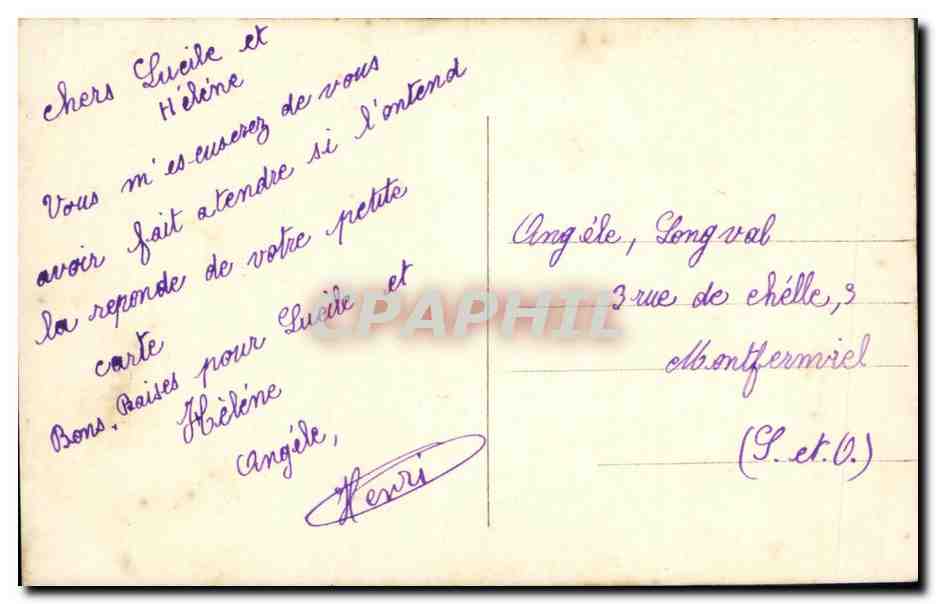 chers Lucile et
Hélène
Vous m'escuserez de vous
avoir fait atendre si l'ontend
la reponde de votre petite
carte
Bons, Baises pour Lucile et
Hèléne
Angéle,
Henri
Angéle, Longval
3 rue de chélle, 3
Montfermiel
(S. et. O.)
CPAPHIL